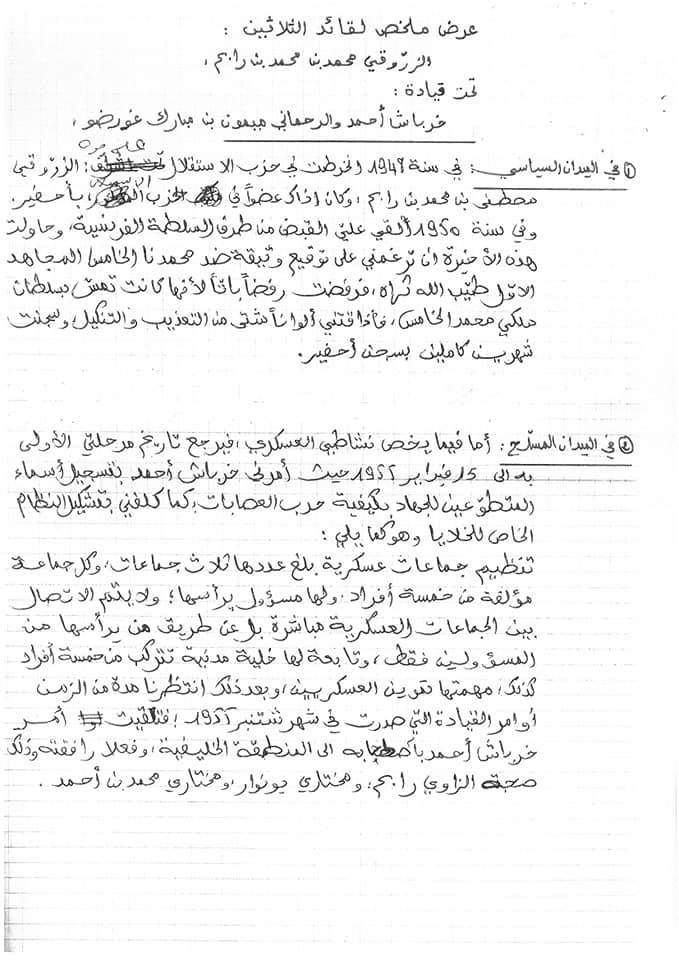 عرض ملخص لقائد الثلاثين :
الزروقي محمد بن محمد بن رابح ،
تحت قيادة :
خرباش أحمد والرحماني ميمون بن مبارك غورضو ،
على يد
① في الميدان السياسي : في سنة 1947 انخرطت في حزب الاستقلال : الزروقي
مصطفى بن محمد بن رابح ، وكان إذاك عضواً في الحزب بأحفير .
وفي سنة 1950 ألقي عليّ القبض من طرف السلطة الفرنسية ، وحاولت
هذه الأخيرة ان ترغمني على توقيع وثيقة ضد محمدنا الخامس المجاهد
الاوّل طيّب الله ثراه ، فرفضت رفضاً باتاً لأنها كانت تمس بسلطان
ملكي محمد الخامس ، فأذاقتني ألواناً شتى من التعذيب والتنكيل ، وسجنت
شهرين كاملين بسجن أحفير .
② في الميدان المسلح : أما فيما يخص نشاطي العسكري ، فيرجع تاريخ مرحلتي الأولى
به الى 15 فبراير 1955 حيث أمرني خرباش أحمد بتسجيل أسماء
المتطوعين للجهاد بكيفية حرب العصابات ، كما كلفني بتشكيل النظام
الخاص للخلايا وهو كما يلي :
تنظيم جماعات عسكرية بلغ عددها ثلاث جماعات ، وكل جماعة
مؤلفة من خمسة أفراد ، ولها مسؤول يرأسها ؛ ولا يتم الاتصال
بين الجماعات العسكرية مباشرة بل عن طريق من يرأسها من
المسؤولين فقط ، وتابعة لها خلية مدنية تتركب من خمسة أفراد
كذلك ، مهمتها تموين العسكريين ، وبعد ذلك انتظرنا مدة من الزمن
أوامر القيادة التي صدرت في شهر شتنبر 1955 ؛ فتلقيت أمر
خرباش أحمد باصطحابه الى المنطقة الخليفية ، وفعلا رافقته وذلك
صحبة الزاوي رابح ، ومختاري بونوار ، ومختاري محمد بن أحمد .